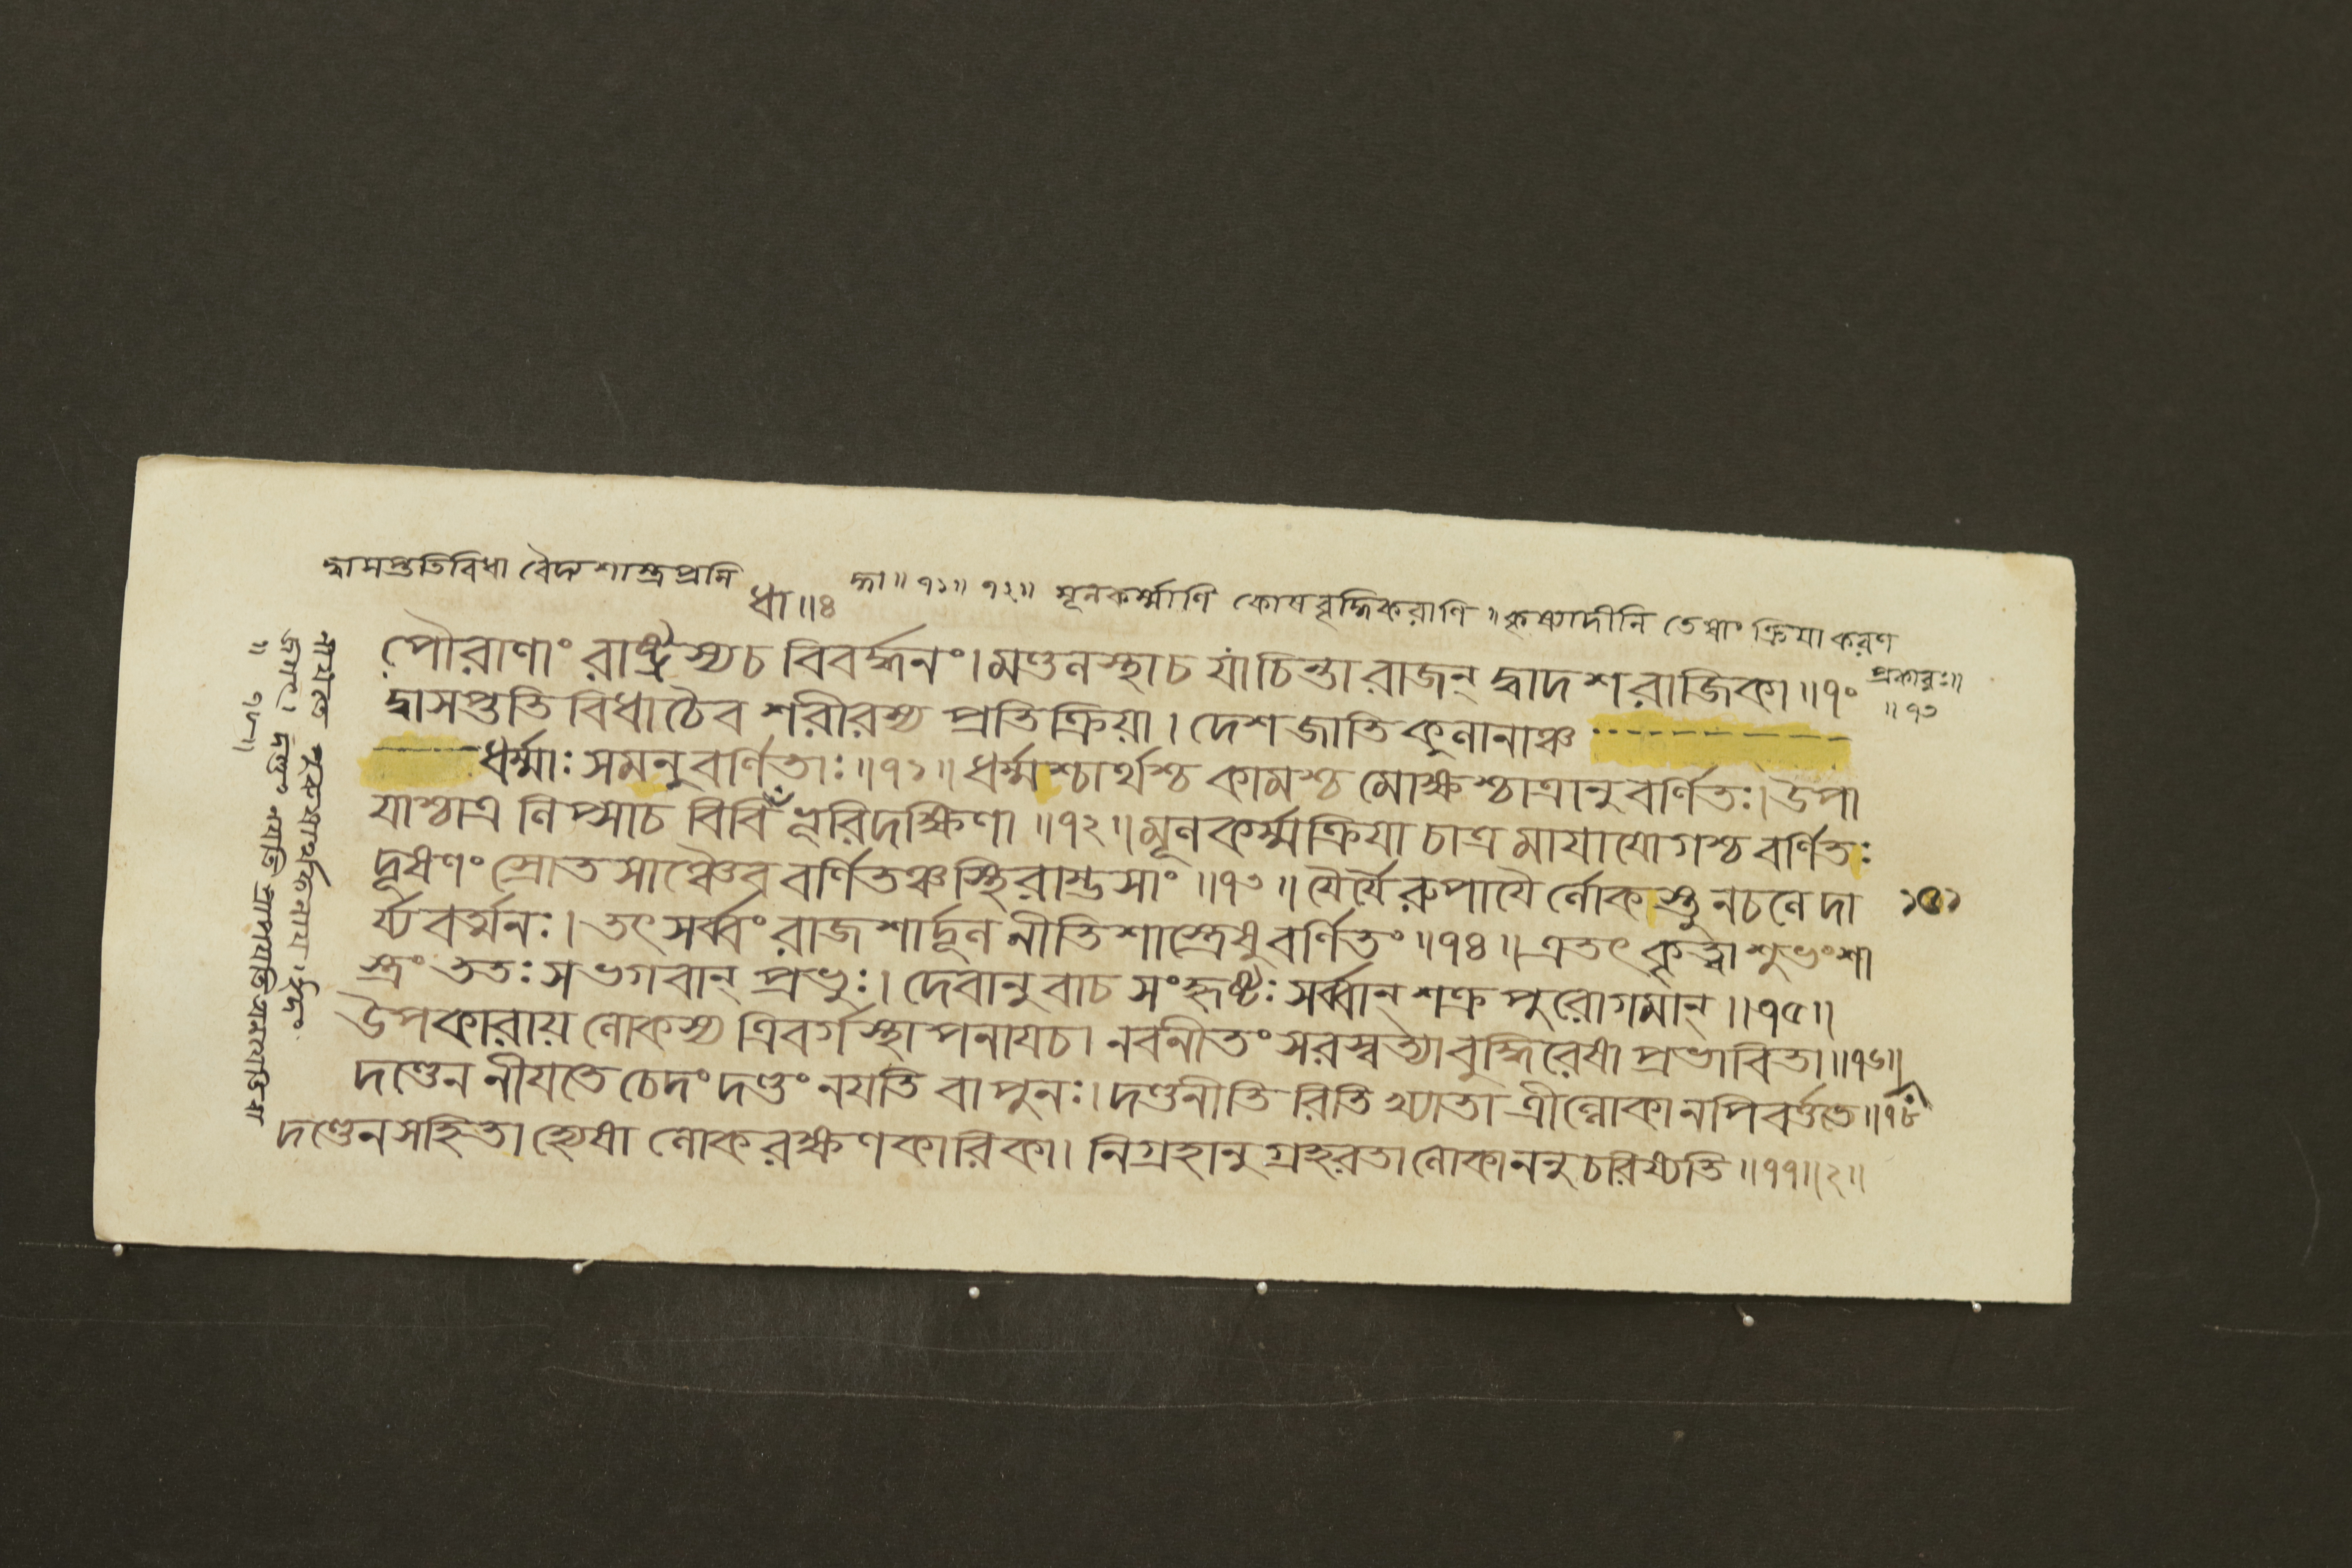 দ্বাসপ্ততিবিধা বৈদ্যশাস্ত্রপ্রসি
দ্ধা॥৭১॥৭২॥ মূলকর্ম্মাণি কোষবৃদ্ধিকরাণি॥কৃষ্যাদীনি তেষাং ক্রিয়া করণ
প্রকারঃ॥
॥৭৩
ধা॥৪
পৌরাণাং রাষ্ট্রস্যচ বিবর্দ্ধনং।মণ্ডলস্থাচ যাচিন্তা রাজন্ দ্বাদশরাজিকা॥৭০
দ্বাসপ্ততি বিধাচৈব শরীরস্য প্রতিক্রিয়া। দেশজাতিকুলানাঞ্চ
ধর্ম্মাঃ সমনুবর্ণিতাঃ॥৭১॥ধর্ম্মশ্চার্থশ্চ কামশ্চ মোক্ষশ্চাত্রানুবর্ণিতঃ।উপা
যাশ্চাত্র লিপ্সাচ বিবি ভূরিদক্ষিণা॥৭২॥মূলকর্ম্মক্রিয়া চাত্র মায়াযোগশ্চ বর্ণিতঃ
দূষণং স্রোতসাঞ্চৈব বর্ণিতঞ্চস্থিরাম্ভসাং॥৭৩॥যৈর্যৈরুপায়ৈর্লোকস্তু নচলেদা
র্য্যবর্ত্মনঃ।তৎ সর্ব্বং রাজশার্দ্দূল নীতিশাস্ত্রেষুবর্ণিতং॥৭৪॥এতৎ কৃত্বা শুভংশা
স্ত্রং ততঃ সভগবান্ প্রভুঃ। দেবানুবাচ সংহৃষ্টঃ সর্ব্বান্ শক্রপুরোগমান্॥৭৫॥
উপকারায় লোকস্য ত্রিবর্গস্থাপনায়চ। নবনীতং সরস্বত্যাবুদ্ধিরেষা প্রভাবিতা॥৭৬॥
দণ্ডেন নীয়তে চেদং দণ্ডং নয়তি বা পুনঃ।দণ্ডনীতি রিতি খ্যাতা ত্রীন্লোকানপিবর্ত্ততে॥৭৮
দণ্ডেনসহিতা হ্যেষা লোকরক্ষণকারিকা। নিগ্রহানুগ্রহরতা লোকাননুচরিষ্যতি॥৭৭॥২॥
১৫১
নীয়তে পুরুষার্থফলায়।ইদং
জগৎ। দণ্ডং নয়তি প্রাপয়তি
॥৭৮॥